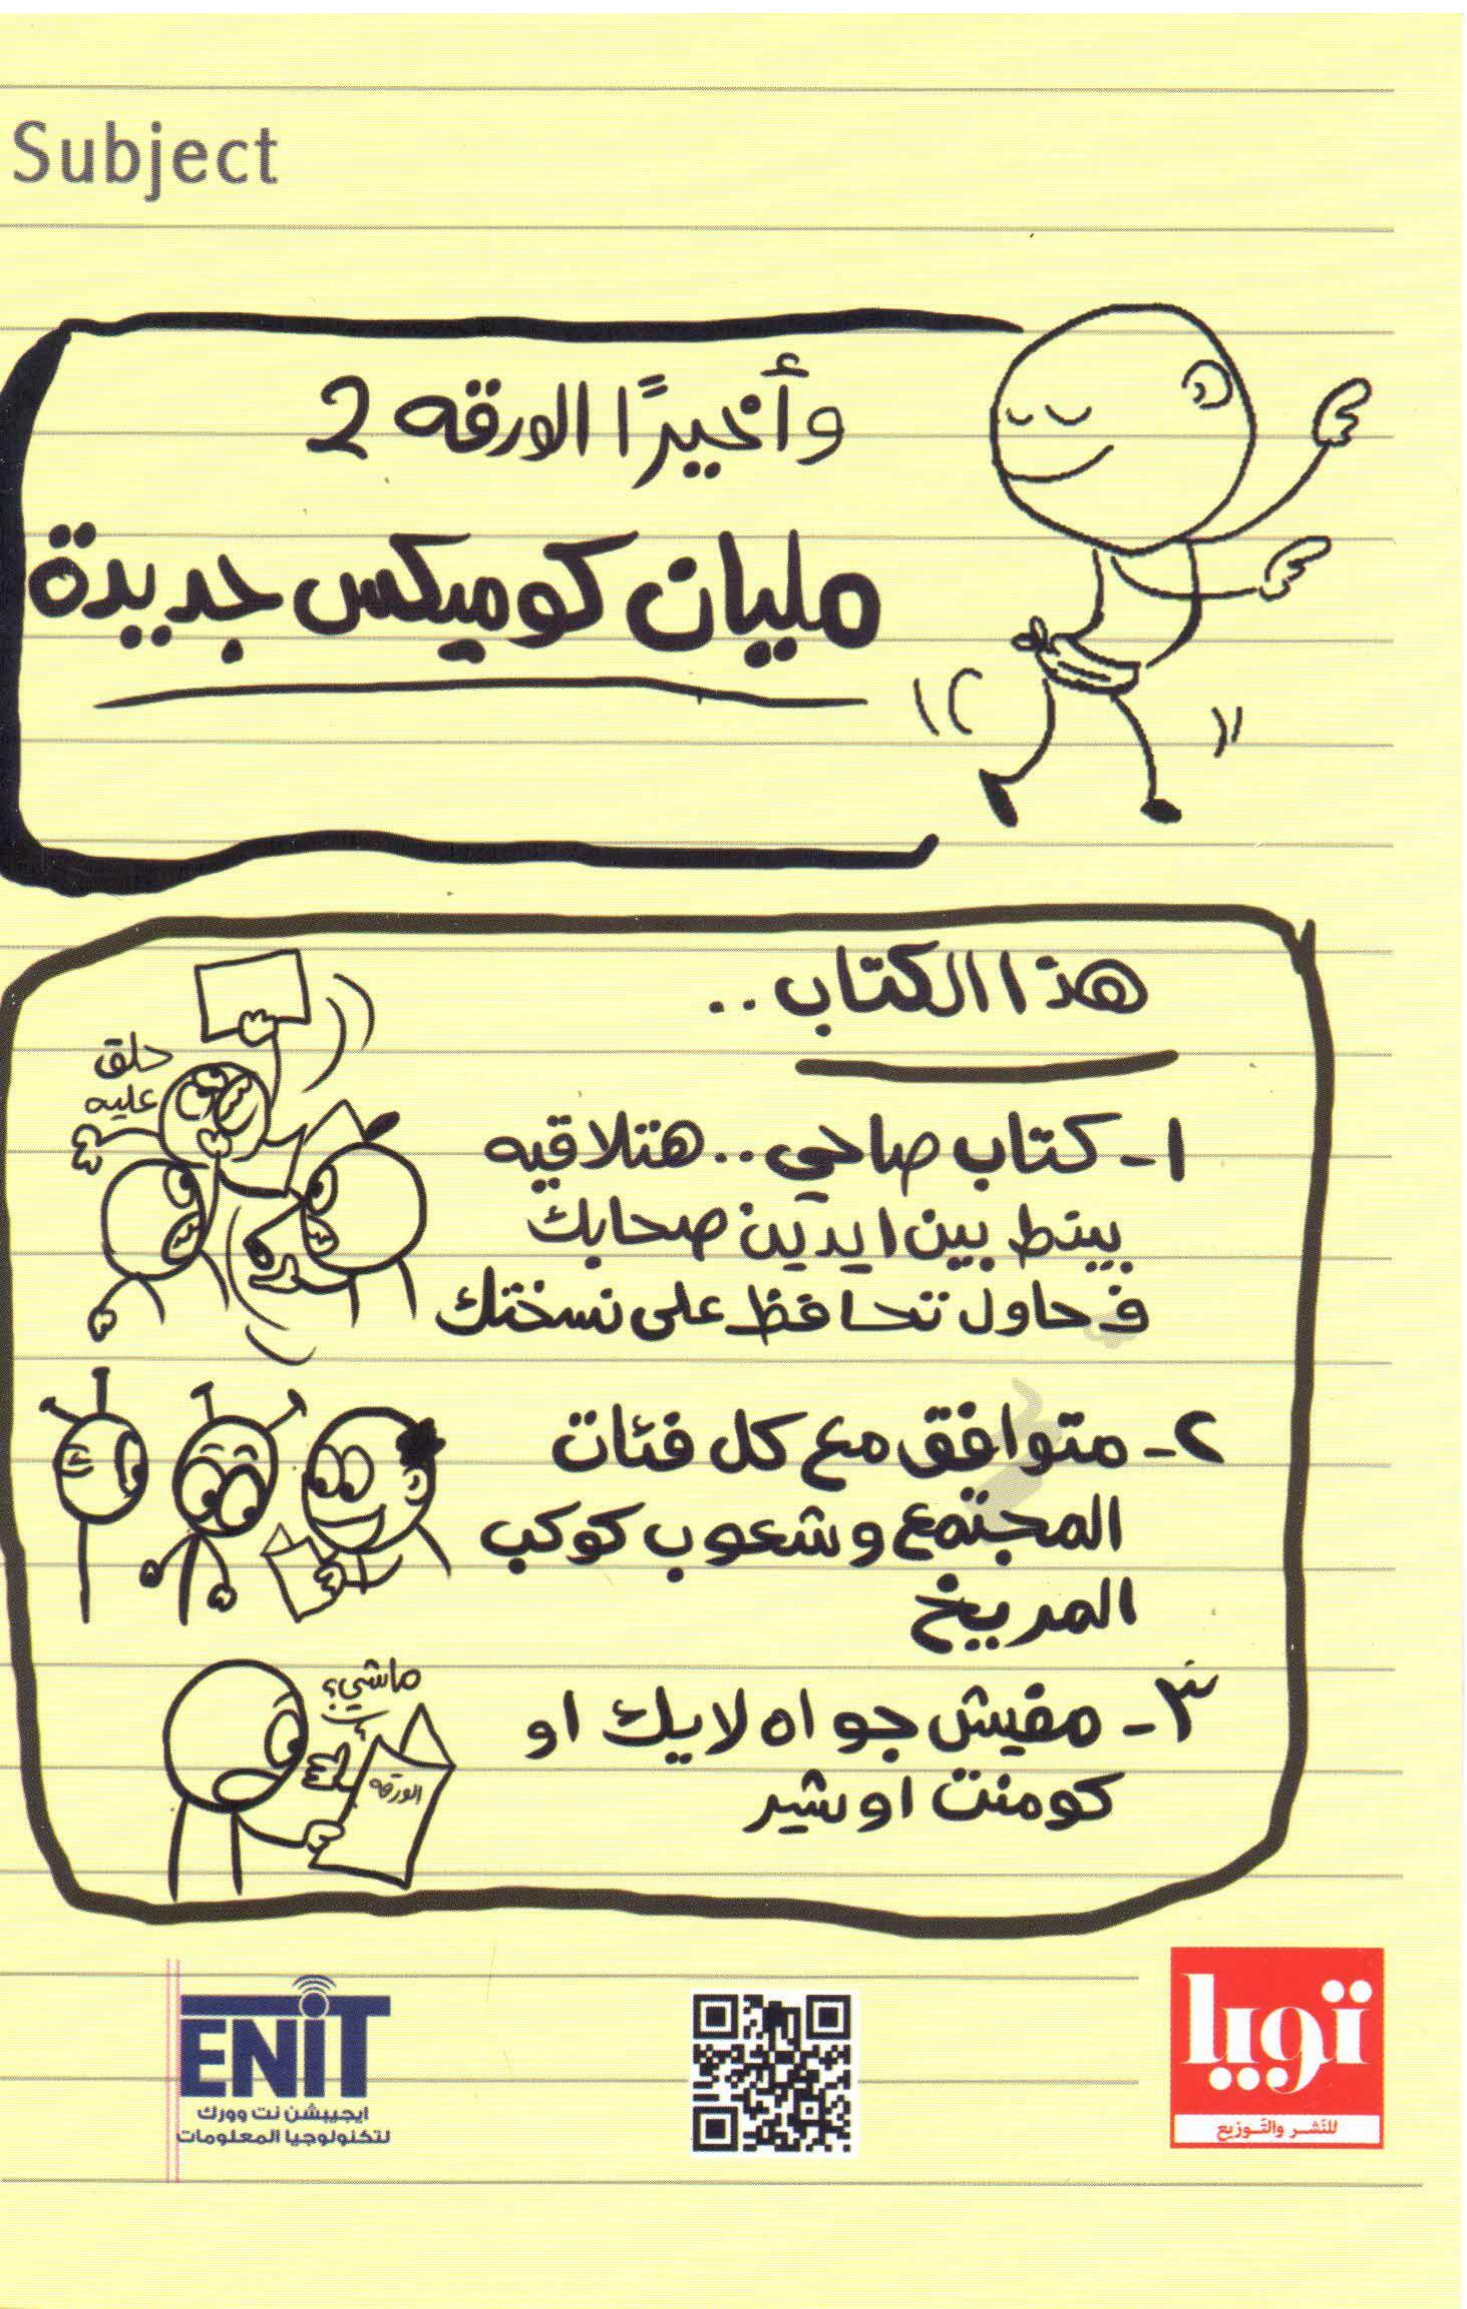 Subject
وأخيرًا الورقه 2
مليان كوميكس جديدة
هذا الكتاب..
حلق
عليه
١- كتاب صاحي.. هتلاقيه
بينط بين ايدين صحابك
فحاول تحافظ على نسختك
٢- متوافق مع كل فئات
المجتمع وشعوب كوكب
المريخ
٣- مفيش جواه لايك او
كومنت او شير
ماشي؟
الورقه
ENiT
ايجيبشن نت وورك
لتكنولوجيا المعلومات
تويا
للنَشر والتَوزيع